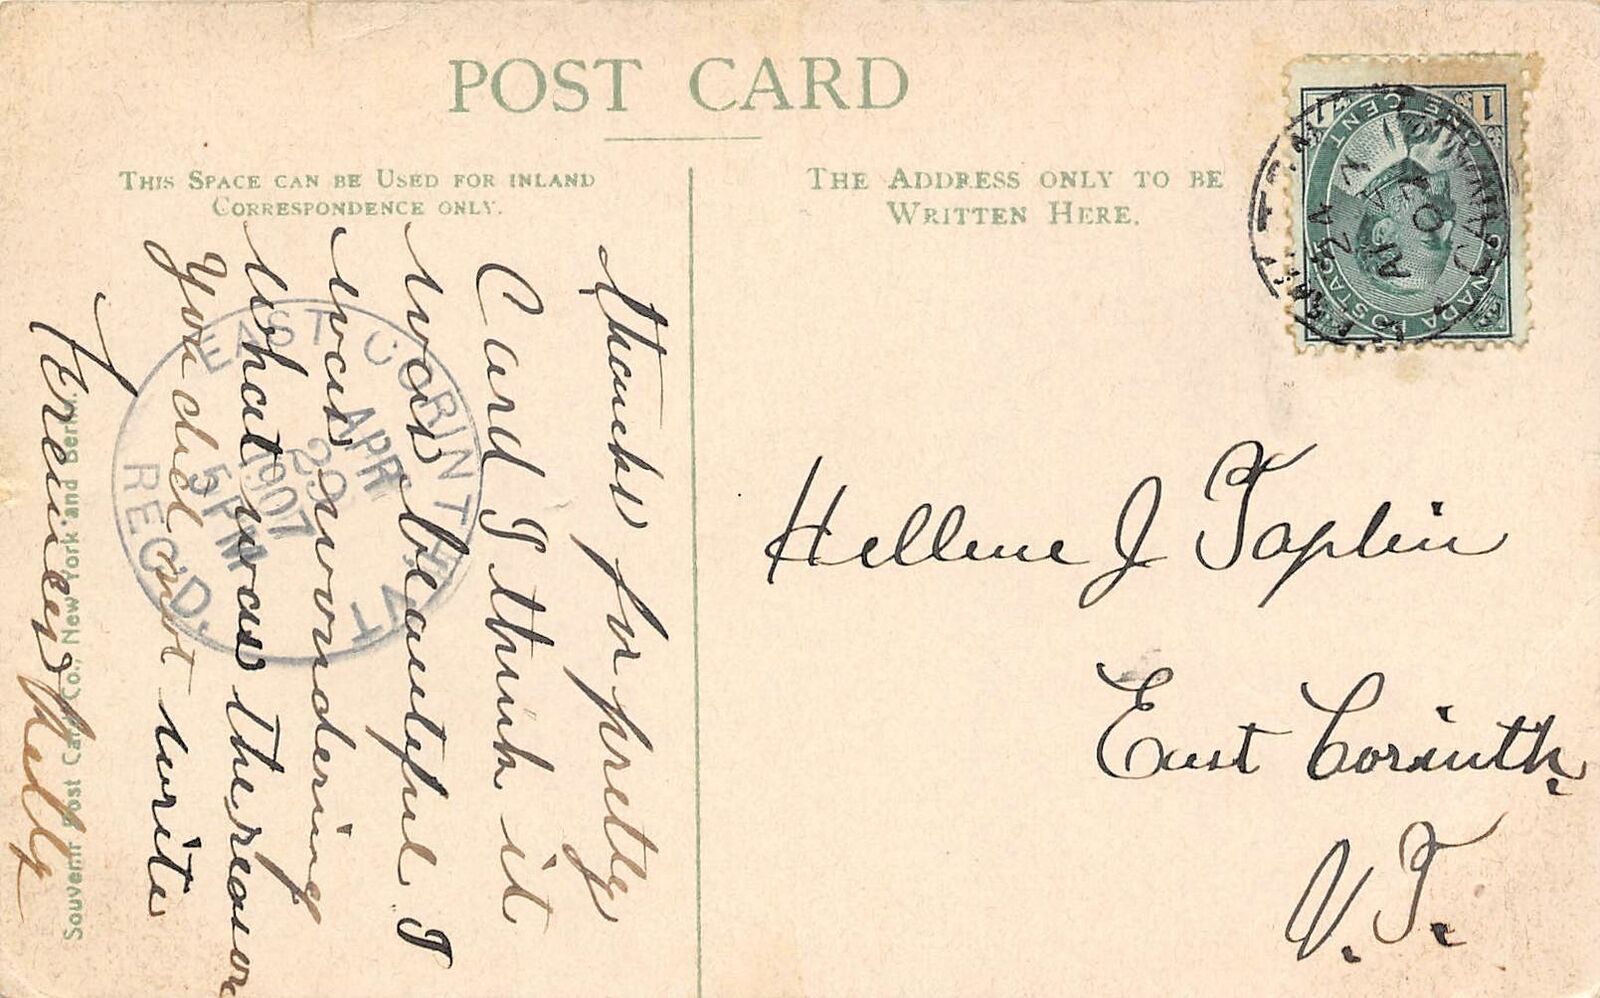 POST CARD
THIS SPACE CAN BE USED FOR INLAND
CORRESPONDENCE ONLY.
THE ADDRESS ONLY TO BE
WRITTEN HERE.
thanks for pretty
Card I think it
was beautiful I
was wondering
what was the reason
you did not write
Frences Kelly
Hellene J Taplin
East Corinth,
V.T.
EAST CORINTH
VT
APR
29
1907
5 PM
REC'D.
CANADA POSTAGE
ONE CENT
1 1
AP
07
CANADA
Souvenir Post Card Co., New York and Berlin.